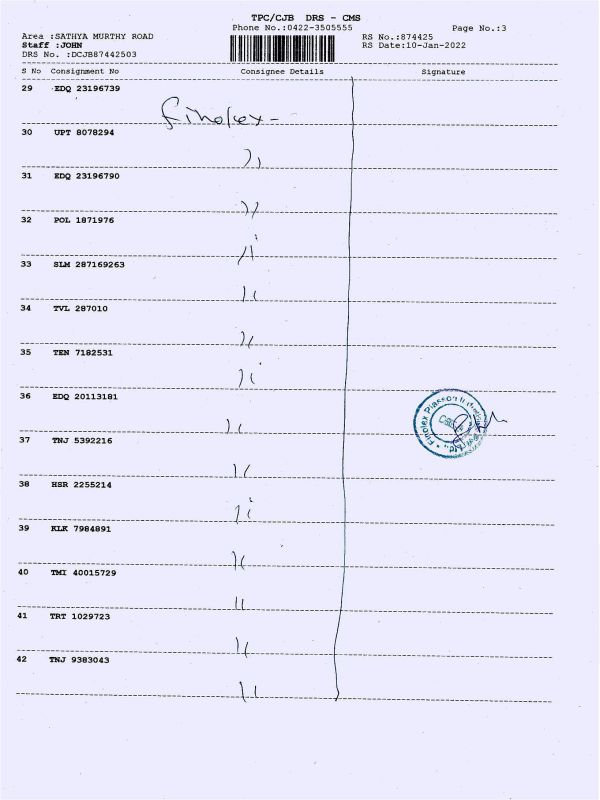 TPC/CJB DRS - CMS
Phone No.:0422-3505555
Page No.:3
Area :SATHYA MURTHY ROAD
RS No.:874425
Staff :JOHN
RS Date:10-Jan-2022
DRS No. :DCJB87442503
S No Consignment No Consignee Details Signature
29 EDQ 23196739
Finolex -
30 UPT 8078294
31 EDQ 23196790
32 POL 1871976
33 SLM 287169263
34 TVL 287010
35 TEN 7182531
36 EDQ 20113181
Finolex Plasson
37 TNJ 5392216
38 HSR 2255214
39 KLK 7984891
40 TMI 40015729
41 TRT 1029723
42 TNJ 9383043